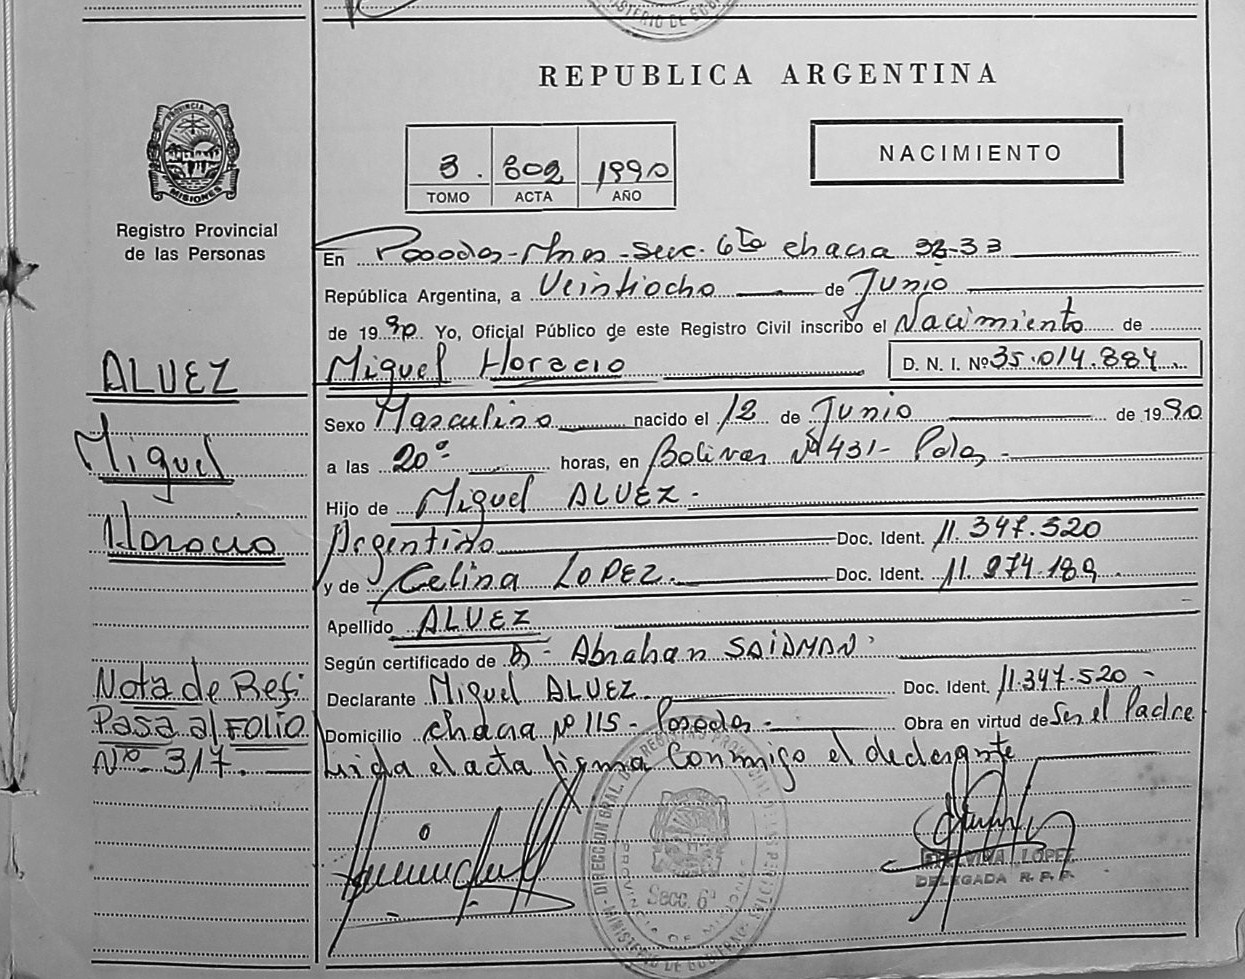 MINISTERIO DE GOB
REPUBLICA ARGENTINA
PROVINCIA DE
MISIONES
Registro Provincial
de las Personas
3. 802 1990
TOMO ACTA AÑO
NACIMIENTO
En Posadas - Mnes - Secc. 6ta chacra 32-33
República Argentina, a Veintiocho de Junio
de 1990 Yo, Oficial Público de este Registro Civil inscribo el Nacimiento de
Miguel Horacio D. N. I. Nº 35.014.884
ALVEZ
Miguel
Horacio
Sexo Masculino nacido el 12 de Junio de 1990
a las 20º horas, en Bolivar Nº 431 - Pdas -
Hijo de Miguel ALVEZ -
Argentino Doc. Ident. 11.347.520
y de Celina LOPEZ. Doc. Ident. 11.974.189
Apellido ALVEZ
Según certificado de Abrahan SAIDMAN
Declarante Miguel ALVEZ Doc. Ident. 11.347.520 -
Domicilio chacra Nº 115 - Posadas - Obra en virtud de Ser el Padre
Leida el acta firma conmigo el declarante
Nota de Ref.
Pasa al FOLIO
Nº 317.
DIRECCION GRAL. DE REGISTRO PROVINCIAL DE LAS PERSONAS
PROVINCIA DE MISIONES
Secc. 6ª
MINISTERIO DE GOBIERNO
LOPEZ
DELEGADA R. P. P.